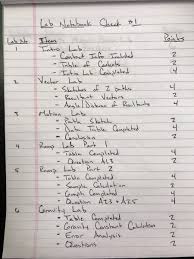 Lab Notebook Check #1
Lab No. Items Points
1 Intro Lab
- Contact Info Included 2
- Table of Contents 2
- Intro Lab Completed 4
2 Vector Lab
- Sketches of 2 paths 4
- Resultant Vectors 2
- Angle/Distance of Resultants 4
3 Motion Lab
- Path Sketch 2
- Data Table Completed 4
- Conclusion 4
4 Ramp Lab Part 1
- Table Completed 4
- Question A23 2
5 Ramp Lab Part 2
- Table Completed 4
- Sample Calculation 2
- Graph Completed 4
- Question A23 + A25 4
6 Gravity Lab
- Table Completed 2
- Gravity Constant Calculation 2
- Error Analysis 2
- Questions 2